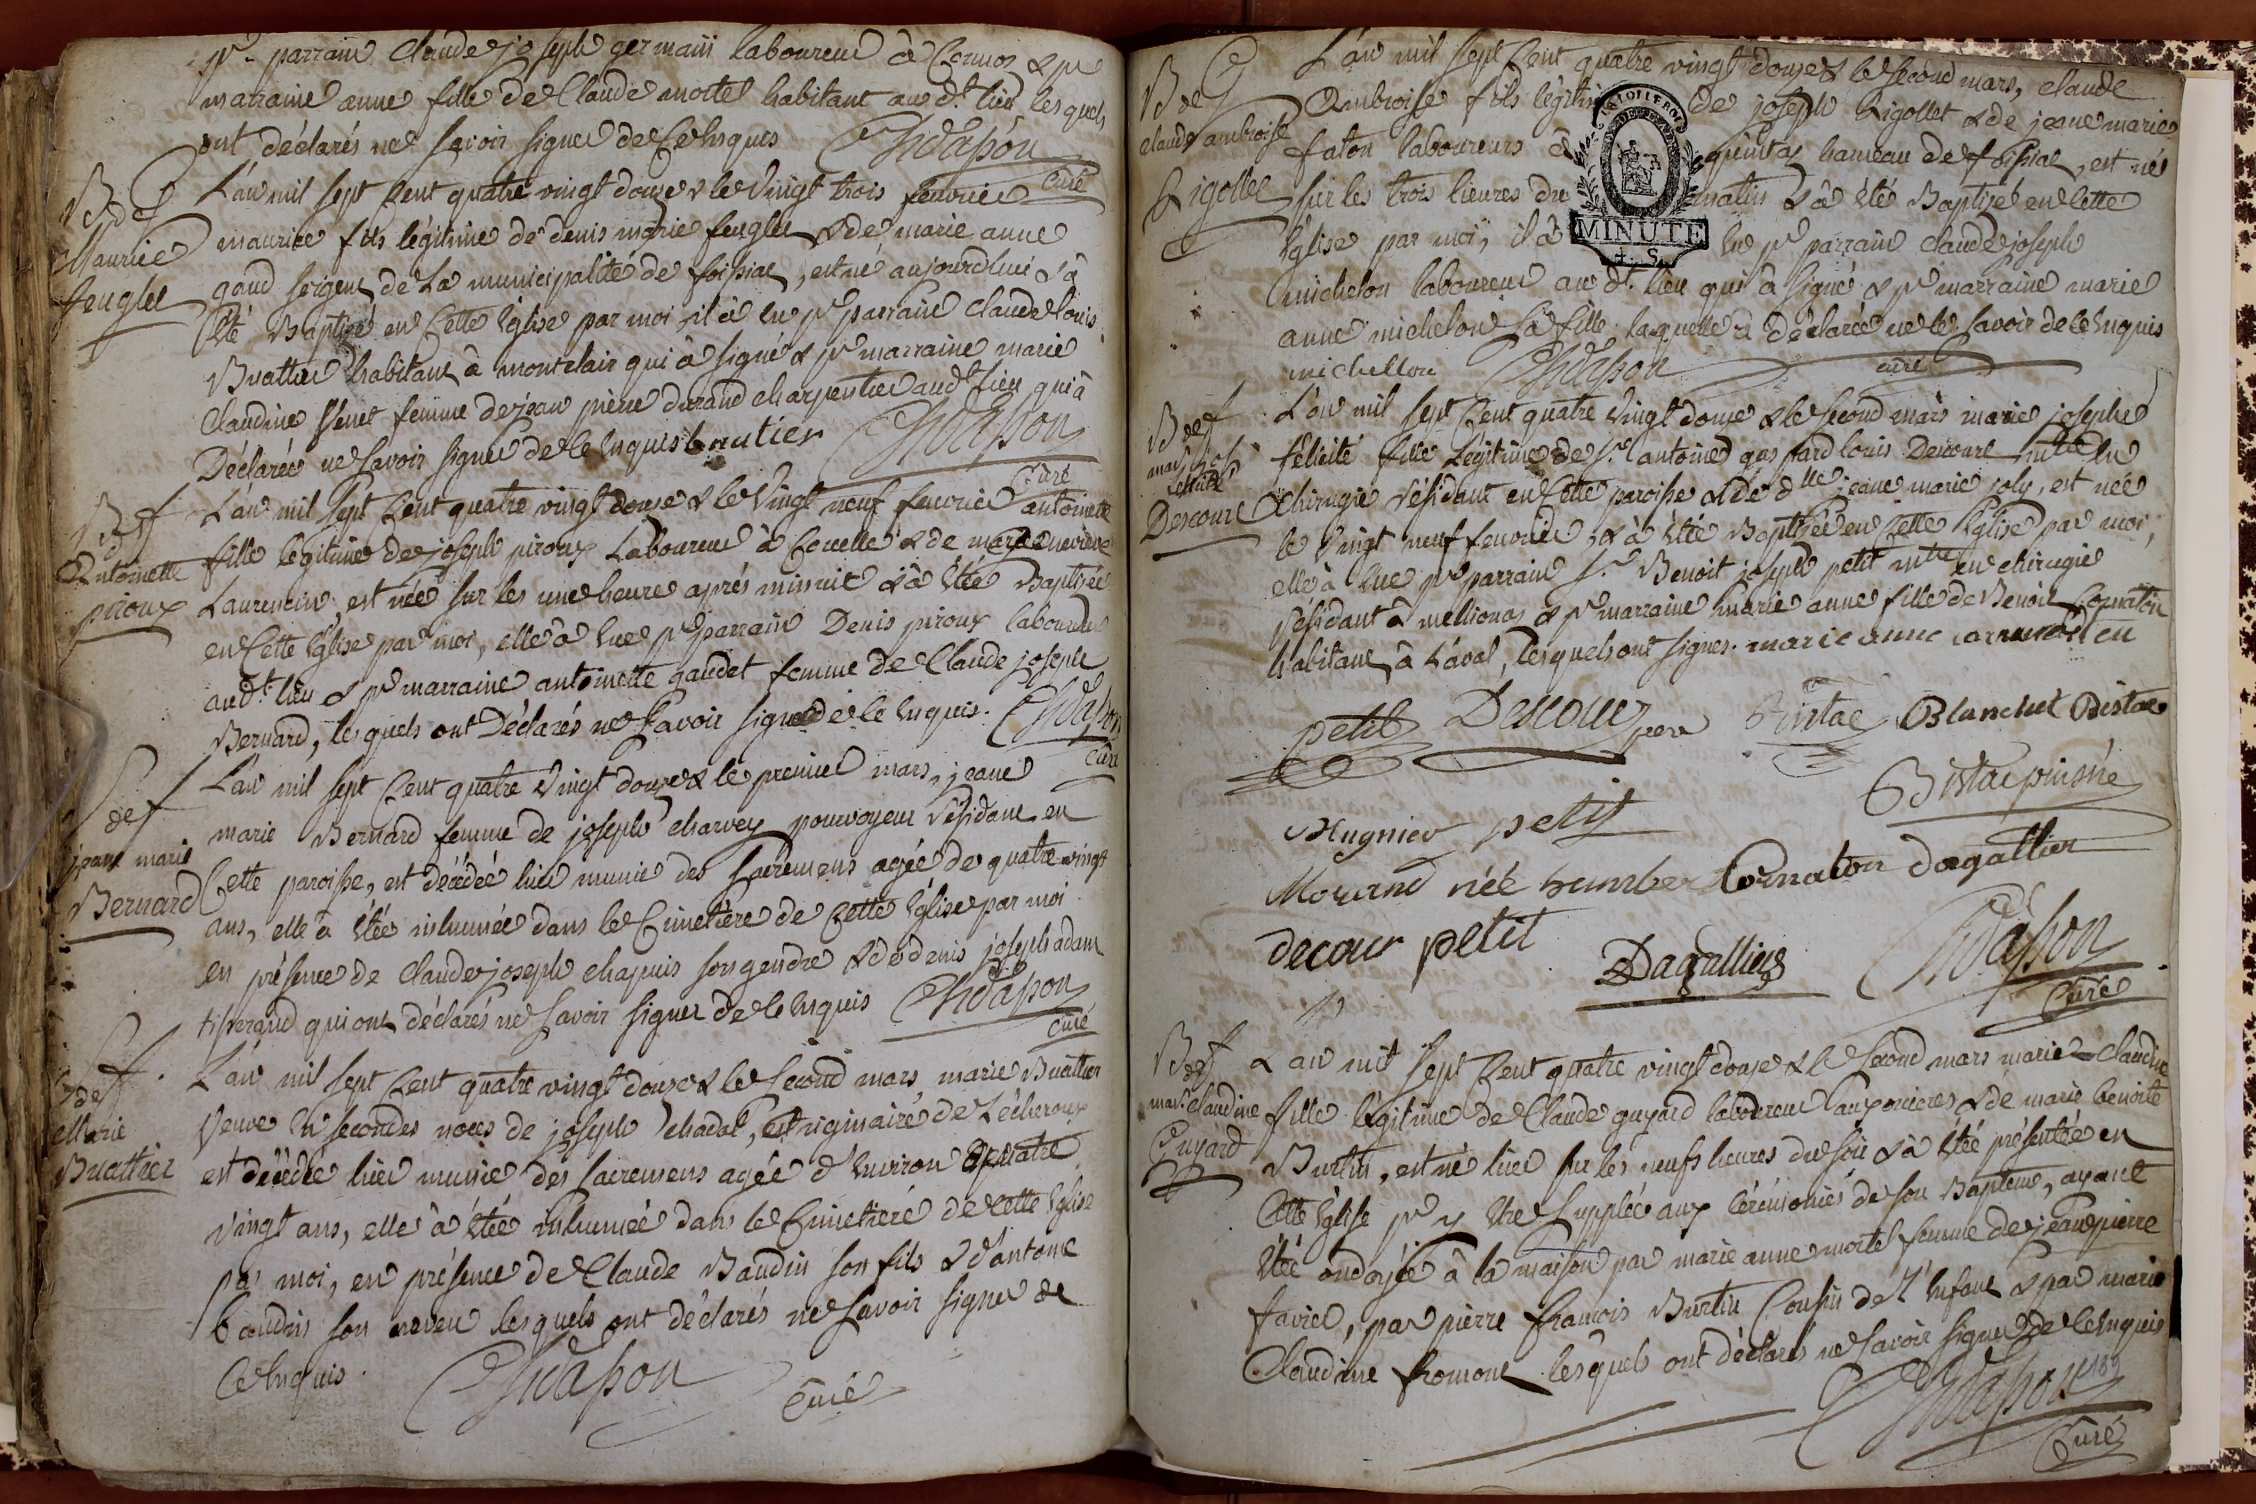 pr. parrain Claude joseph germain laboureur à Cormoz & pr
marraine anne fille de Claude mortel habitant au dt. lieu lesquels
ont déclarés ne savoir signer de ce Enquis Chdasson
curé
B de G
Maurice
feuglet
L'an mil sept Cent quatre vingt douze & le Vingt trois fevrier
maurice fils légitime de denis marie feuglet & de marie anne
gaud sergent de La municipalité de foissiat, est né aujourd'hui & à
Eté Baptisé en Cette Eglise par moi il à Eu pr parrain Claude Louis
Buattier habitant à montclair qui à signé & pr marraine marie
Claudine Venet femme de jean pierre durand charpentier au dt lieu qui à
Déclarée ne Savoir signer de ce Enquis buatier Chdasson
Curé
B de f
Antoinette
piroux
L'an mil Sept Cent quatre vingt douze & le Vingt neuf fevrier antoinette
fille légitime de joseph piroux Laboureur à Couelle & de marie genevieve
Laurencin, est née sur les une heure après minuit & à Etée Baptisée
en Cette Eglise par moi, elle à Eue pr parrain Denis piroux laboureur
au dt. lieu & pr marraine antoinette gaudet femme de Claude joseph
Bernard, lesquels ont Déclarés ne Savoir signer de ce Enquis. Chdasson
Curé
S de f
jeane marie
Bernard
L'an mil sept Cent quatre Vingt douze & le premier mars, jeane
marie Bernard femme de joseph charvey pourvoyeur résidant en
Cette paroisse, est décédée hier munie des sacremens agée de quatre vingt
ans, elle a Etée inhumée dans le Cimetière de Cette Eglise par moi
en présence de Claude joseph chapuis son gendre & de denis joseph adam
tisserand qui ont déclarés ne Savoir signer de ce Enquis Chdasson
curé
S de f.
Marie
Buattier
L'an mil sept Cent quatre vingt douze & le Second mars marie Buattier
Veuve En secondes noces de joseph chadal, est originaire de Lécheroux
est décédée hier munie des sacremens agée d'Environ quatre
vingt ans, elle à étée inhumée dans le Cimetière de Cette Eglise
par moi, en présence de Claude Baudin son fils & d'antoine
baudin son neveu lesquels ont déclarés ne Savoir signer de
Ce Enquis. Chdasson Curé
B de G
Claude ambroise
Rigollet
L'an mil sept Cent quatre vingt douze & le Second mars, Claude
Ambroise fils légitime de joseph Rigollet & de jeane marie
faton laboureurs à quintas hameau de foissiat, est né
sur les trois heures du matin & à été Baptisé en Cette
Eglise par moi, il à Eu pr parrain Claude joseph
michelon laboureur au dt. lieu qui à signé & pr marraine marie
anne michelon sa fille laquelle à déclarée ne le savoir de ce Enquis
michellon Chdasson curé
MINUTE
4. S.
B de f
marie jos.
felicité
Descourt
L'an mil sept Cent quatre Vingt douze & le Second mars marie josephe
félicité fille Légitime de Sr. antoine gaspard louis Descourt mtre En
Chirugie résidant en Cette paroisse & de dlle jeane marie joly, est née
le Vingt neuf fevrier, & à Etée Baptisée en Cette Eglise par moi,
elle à Eue pr parrain Sr. Benoit joseph petit mtre en chirugie
résidant à mellionas & pr marraine marie anne fille de Benoit Cornaton
habitant à Laval, lesquels ont signes. marie anne cornaton
petit Descour pere Bistac Blanchet Bistac
Bistac puisné
Mugnier petit
Morand née humber Cornaton dagallier
decour petit Dagallier Chdasson
Curé
B de f
marie Claudine
Guyard
L'an mil sept Cent quatre vingt douze & le Second mars marie Claudine
fille légitime de Claude guyard laboureur aux poncieres & de marie benoite
Burtin, est né hier sur les neufs heures du soir & à étée présentée en
Cette Eglise pr y Etre Supplée aux Cérémonies de son Baptême, ayant
Etée ondoyée à la maison par marie anne mortel femme de jean pierre
favier, par pierre françois Burtin Cousin de l'Enfant & par marie
Claudine fromont lesquels ont déclarés ne Savoir signer de ce Enquis
Chdasson
Curé